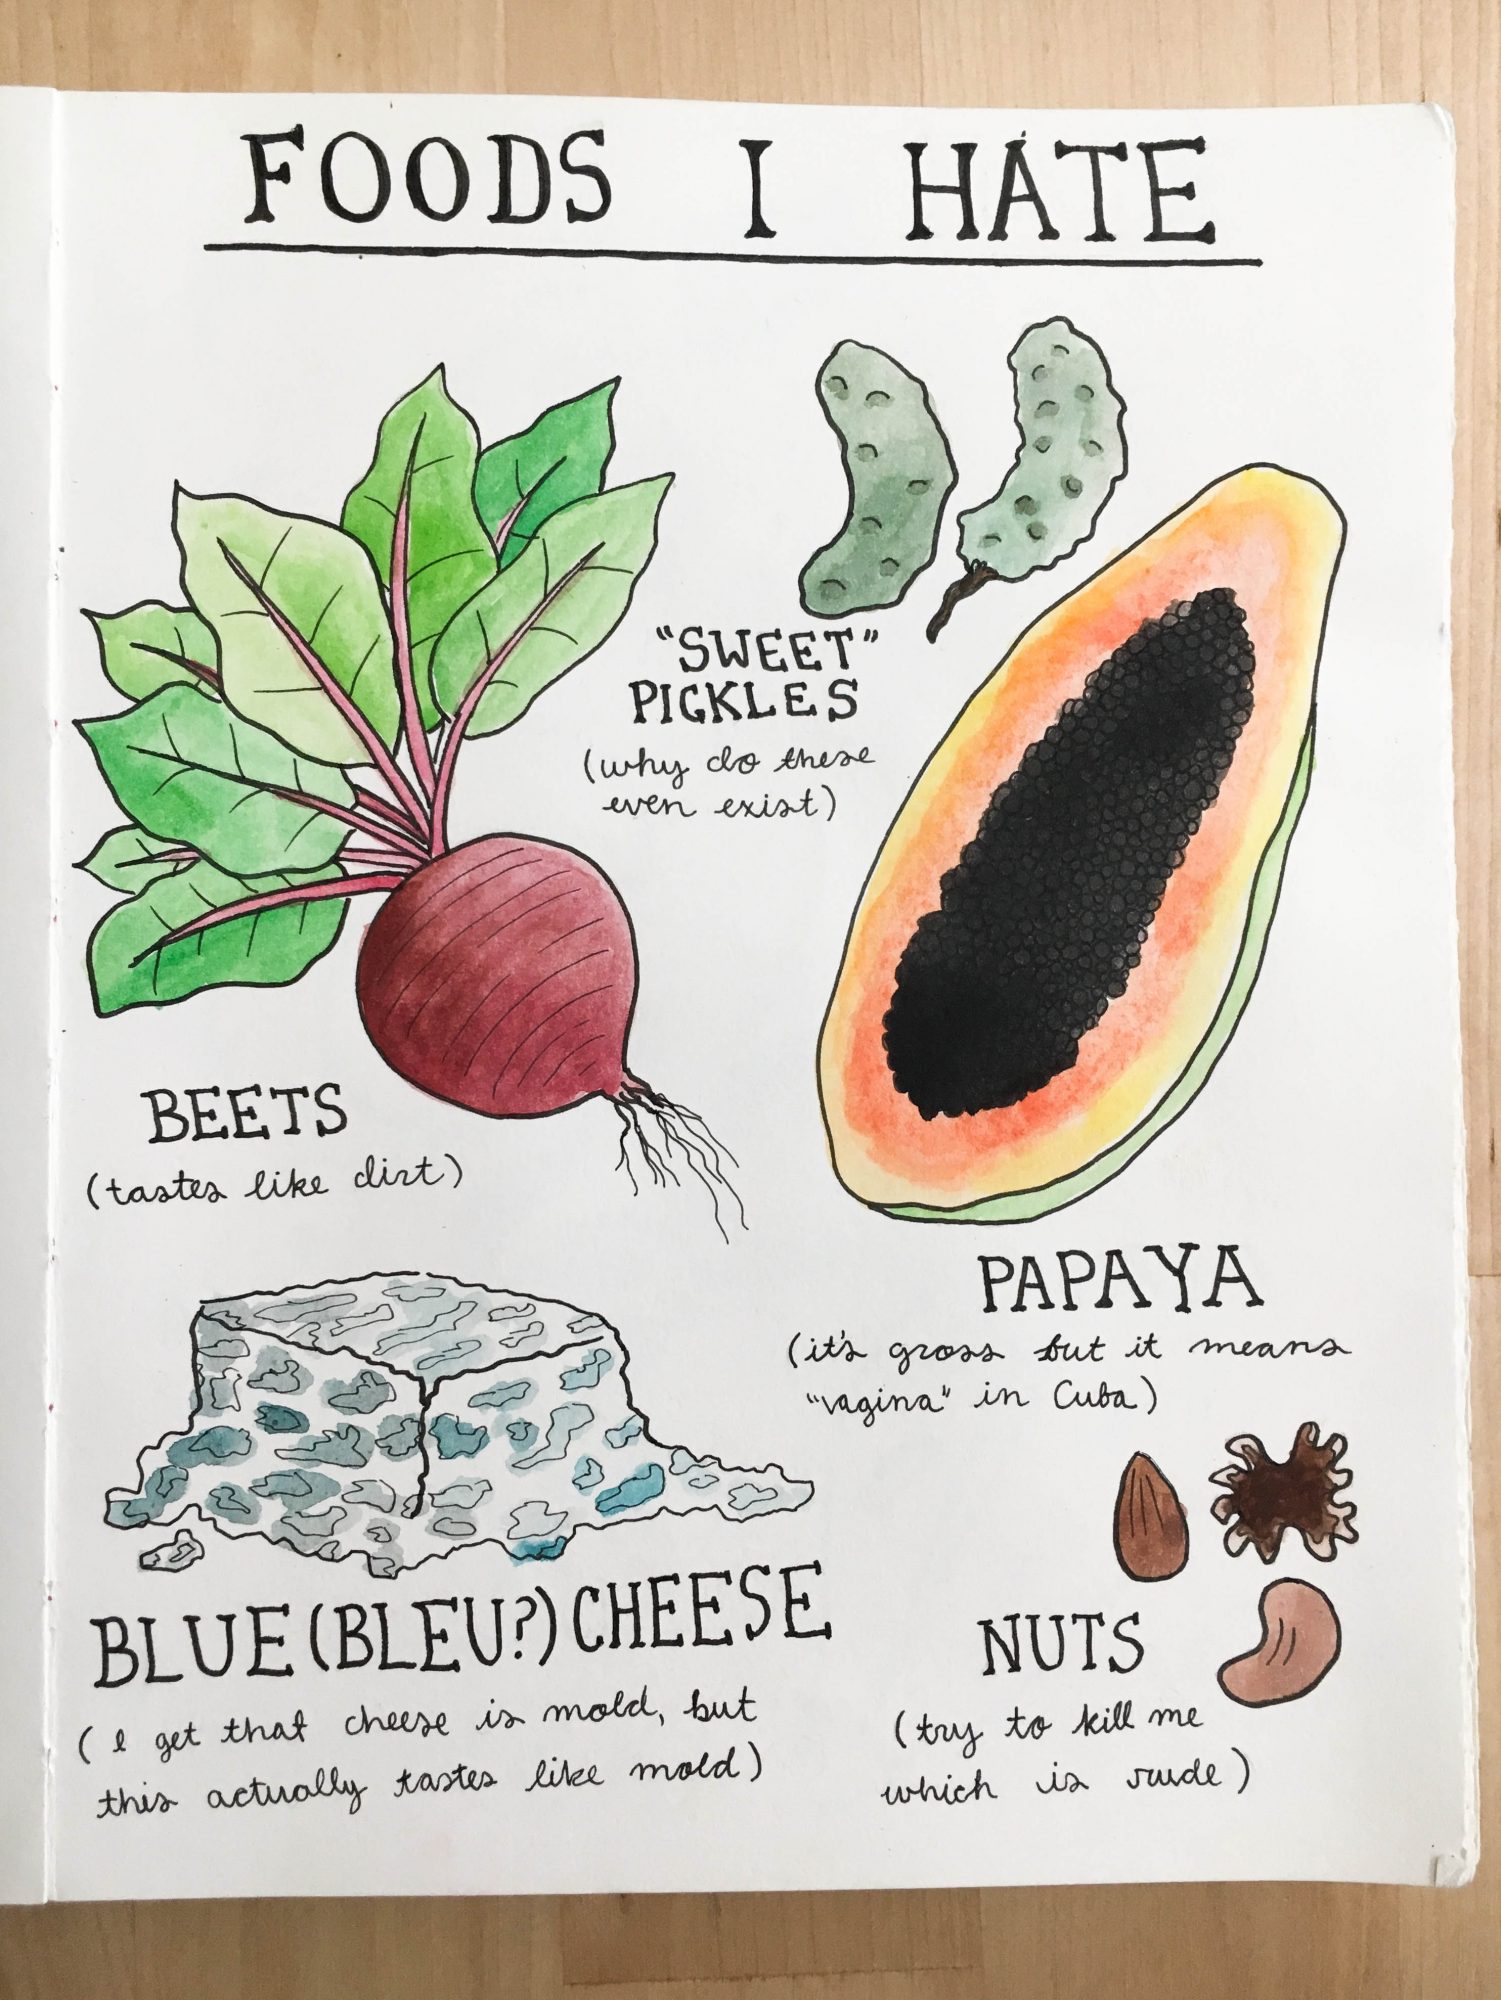 FOODS I HATE
"SWEET"
PICKLES
(why do these
even exist)
BEETS
(tastes like dirt)
PAPAYA
(it's gross but it means
"vagina" in Cuba)
BLUE (BLEU?) CHEESE
(I get that cheese is mold, but
this actually tastes like mold)
NUTS
(try to kill me
which is rude)